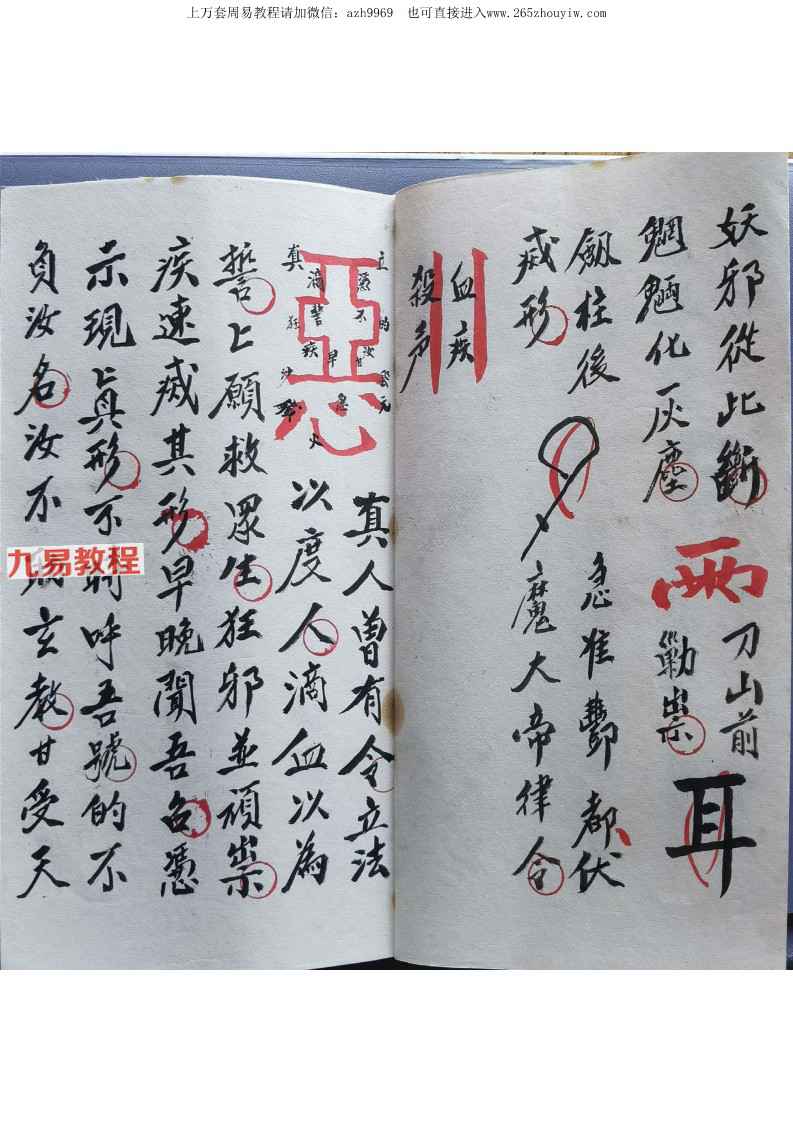 上万套周易教程请加微信：azh9969　也可直接进入www.265zhouyiw.com
妖邪從此斷
刀山前
魍魎化灰塵
雨
勦祟
耳
劔柱後
急准酆都伏
滅形
魔大帝律令
血疾
殺
惡
真人曾有令立法
以度人滴血以為
誓上願救眾生狂邪並頑祟
疾速滅其形早晚聞吾名憑
示現上真形不 呼吾號的不
負汝名汝不 玄教甘受天
九易教程